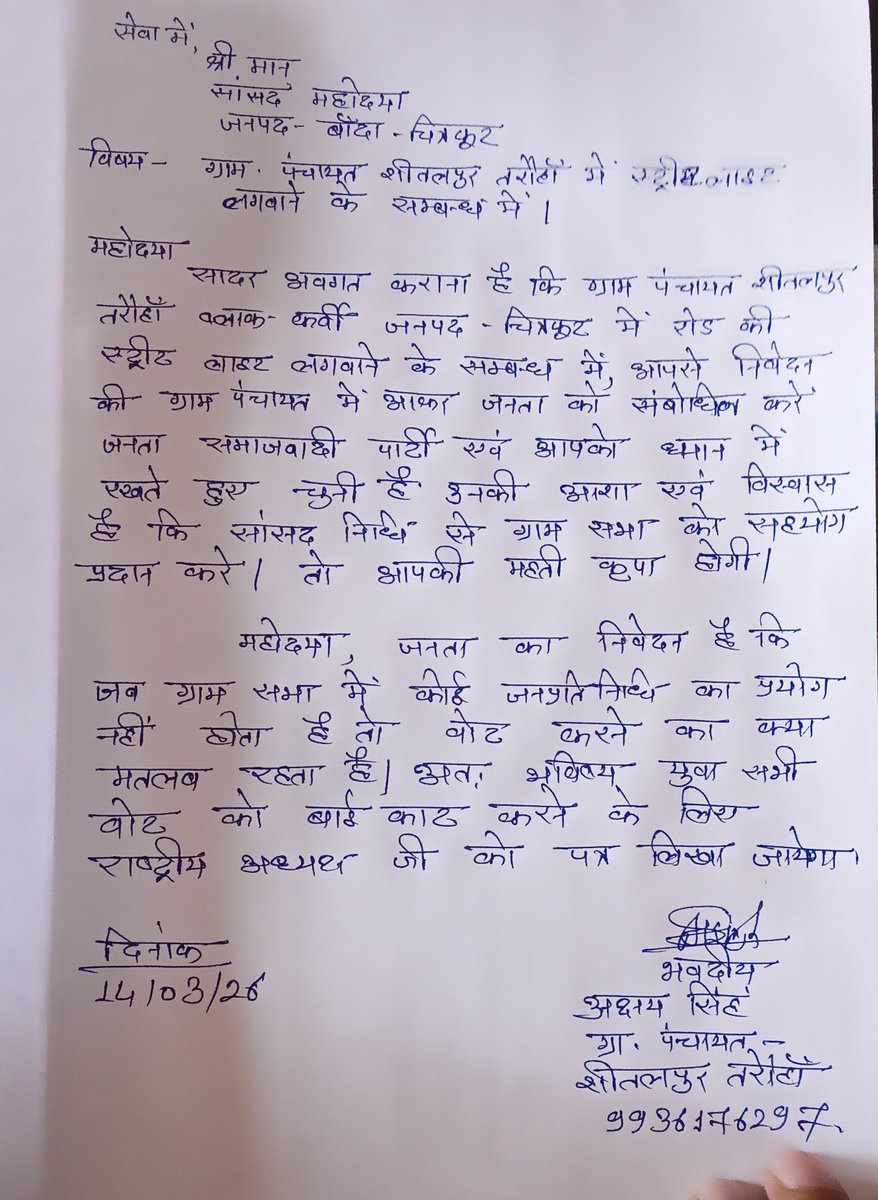 सेवा में,
श्री मान,
सांसद महोदया
जनपद - बाँदा - चित्रकूट
विषय - ग्राम. पंचायत शीतलपुर तरौहाँ में स्ट्रीट लाइट
लगवाने के सम्बन्ध में।
महोदया
सादर अवगत कराना है कि ग्राम पंचायत शीतलपुर
तरौहाँ ब्लाक - कर्वी जनपद - चित्रकूट में रोड की
स्ट्रीट लाइट लगवाने के सम्बन्ध में, आपसे निवेदन
की ग्राम पंचायत में आकर जनता को संबोधित करें
जनता समाजवादी पार्टी एवं आपको ध्यान में
रखते हुए चुनी है उनकी आशा एवं विस्वास
है कि सांसद निधि से ग्राम सभा को सहयोग
प्रदान करे। तो आपकी महती कृपा होगी।
महोदया, जनता का निवेदन है कि
जब ग्राम सभा में कोई जनप्रतिनिधि का प्रयोग
नहीं होता है तो वोट करने का क्या
मतलब रहता है। अतः भविष्य युवा सभी
वोट को बाई काट करने के लिए
राष्ट्रीय अध्यक्ष जी को पत्र लिखा जायेगा।
दिनांक
14/03/26
भवदीय
अक्षय सिंह
ग्रा. पंचायत -
शीतलपुर तरौहाँ
9936176297